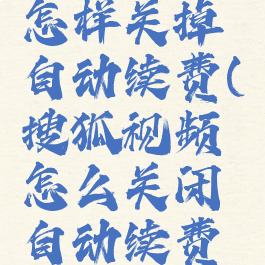 怎样关掉
自动续费(
搜狐视频
怎么关闭
自动续费